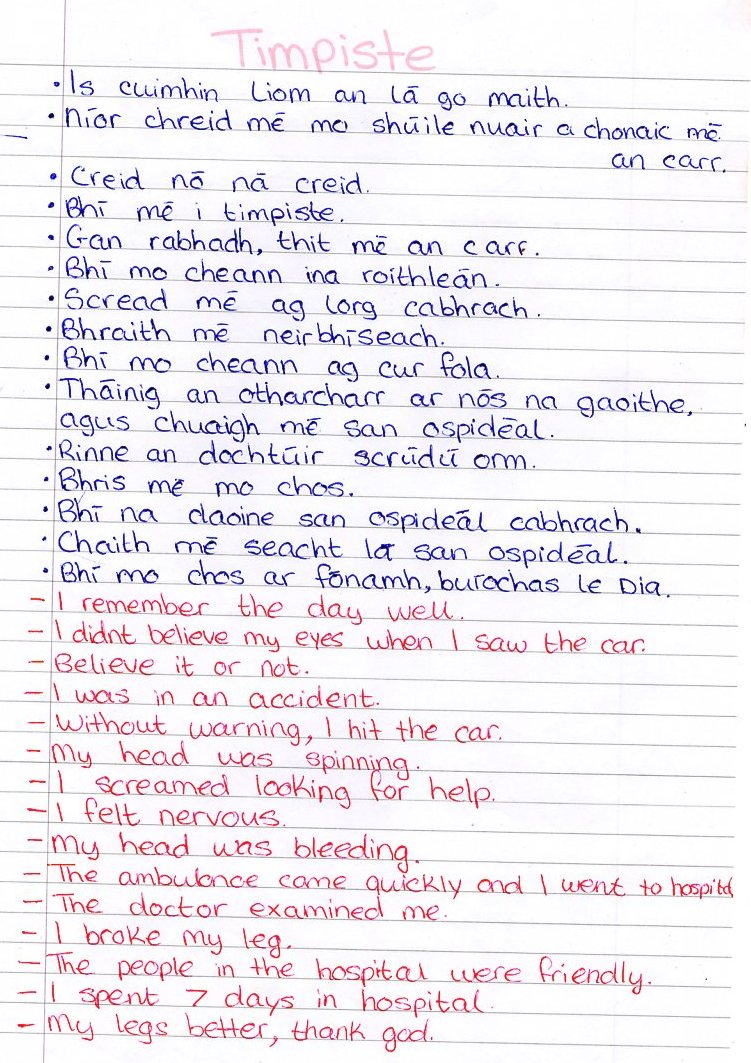 Timpiste
• Is cuimhin liom an lā go maith.
• Níor chreid mē mo shūile nuair a chonaic mē
an carr.
• Creid nō nā creid.
• Bhī mē i timpiste.
• Gan rabhadh, thit mē an carr.
• Bhī mo cheann ina roithleān.
• Scread mē ag lorg cabhrach.
• Bhraith mē neirbhīseach.
• Bhī mo cheann ag cur fola.
• Thāinig an otharcharr ar nōs na gaoithe,
agus chuaigh mē san ospidēal.
• Rinne an dochtūir scrūdū orm.
• Bhris mē mo chos.
• Bhī na daoine san ospideāl cabhrach.
• Chaith mē seacht lā san ospidēal.
• Bhī mo chos ar fōnamh, burochas le Dia.
- I remember the day well.
- I didnt believe my eyes when I saw the car.
- Believe it or not.
- I was in an accident.
- Without warning, I hit the car.
- My head was spinning.
- I screamed looking for help.
- I felt nervous.
- My head was bleeding.
- The ambulance came quickly and I went to hospital
- The doctor examined me.
- I broke my leg.
- The people in the hospital were friendly.
- I spent 7 days in hospital.
- My legs better, thank god.